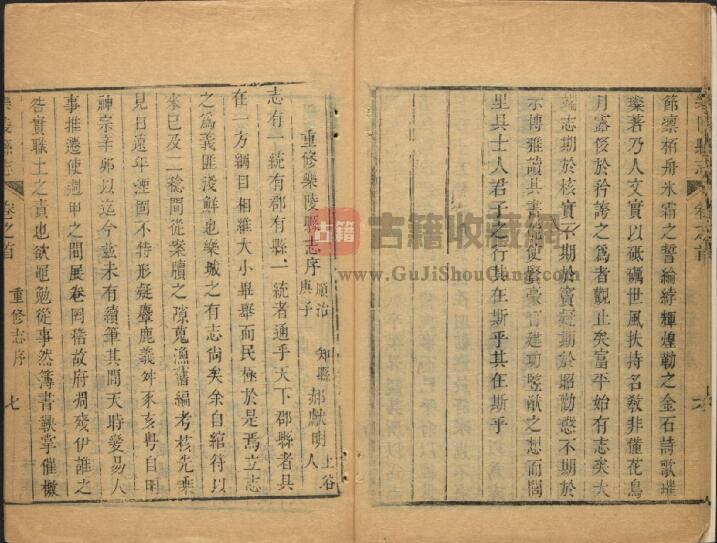 節凛栢舟氷霜之誓綸綍輝煌勒之金石詩歌璀
璨著乃人文實以砥礪世風扶持名教非僅花鳥
月露佼於矜誇之為者觀止矣富平始有志矣大
端志期於核實不期於寳疑期於昭勸懲不期於
示博雅讀其書能使賢豪 建功 猷之想而閭
里具士人君子之行其在斯乎其在斯乎
重修樂陵縣志序
順治
庚子
知縣
郝獻明
上谷
人
志有一統有郡有縣一統者通乎天下郡縣者具
在一方綱目相維大小畢舉而民極於是焉立志
之為義匪淺鮮也樂城之有志尚矣余自綰符以
來已及二稔間從案牘之隙蒐漁舊編考核先乘
見日遠年湮固不特形疑麞鹿義舛豕亥粤自明
神宗辛卯以迄今玆未有續筆其間天時變易人
事推遷使週甲之間展卷罔稽故府凋殘伊誰之
咎實職土之責也欲黽勉從事然簿書鞅掌催檄
樂陵縣志
卷之首
重修志序
七
古籍
古籍收藏网
www.GuJiShouCang.com